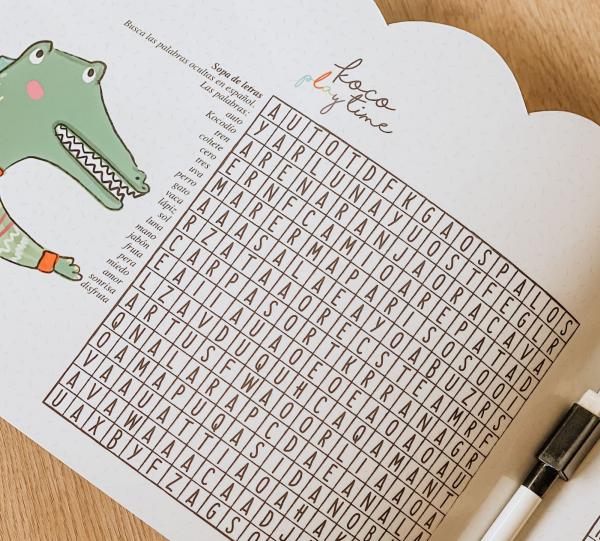 koco
playtime
Busca las palabras ocultas en español.
Sopa de letras
Las palabras:
auto
Kocodio
tren
cohete
cero
tres
uva
perro
gato
vaca
lápiz
sol
luna
mano
jabón
fruta
pera
miedo
amor
sonrisa
disfruta
A U T O T D F K G A O S P A L O S
Y A R L U N A Y U O S T F E G L R
A R E N A R A N J A O R A C A V A
E R N F C A M I O A R E P A T A D
M A R E R M A P A R I S O S O O I
A A A S A L A E A Y O A B U Z R S
R Z A T A A O R E C S T E A M R F
C A R P A S O R T K R R A N A G R
E A I I A U A O E O E A O A O A U
I Z A V D U Q U H C A Q A M A N T
A R T U S F W A O O R L I A A O A
Q N A L A R A P C D A E A N A L A
O A M A P U Q A S D A N O B
V A A U A T T I A O A H A K
A V A W A A A C A A D J
U A X B Y F Z A G S O